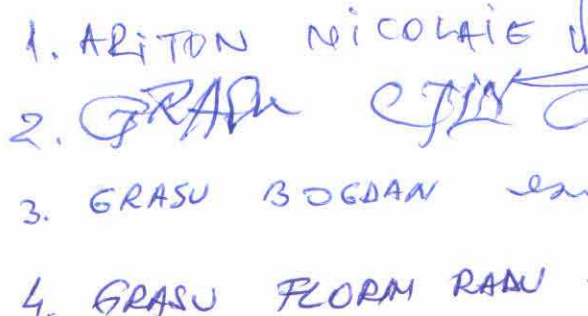 1. ARITON NICOLAIE
2. GRASU CTIN
3. GRASU BOGDAN
4. GRASU FLORIN RADU